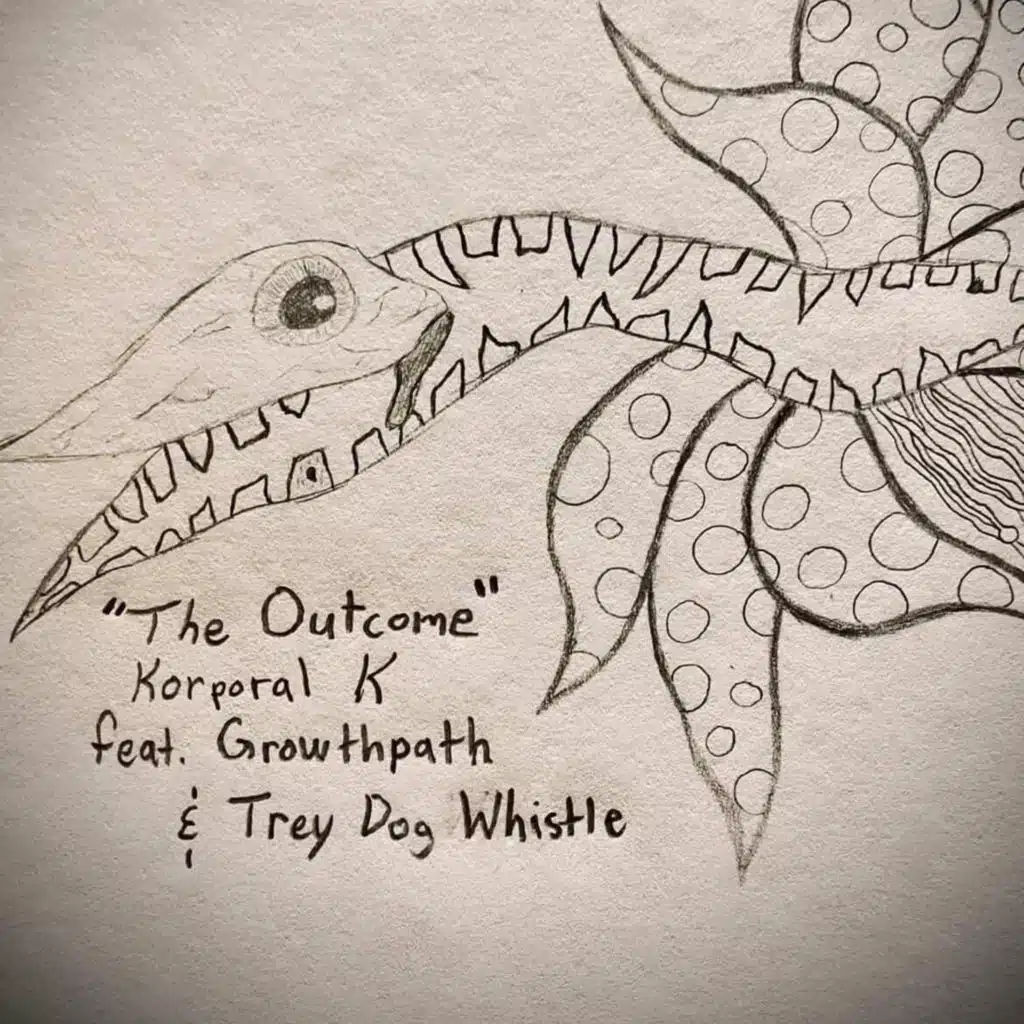 "The Outcome"
Korporal K
feat. Growthpath
& Trey Dog Whistle